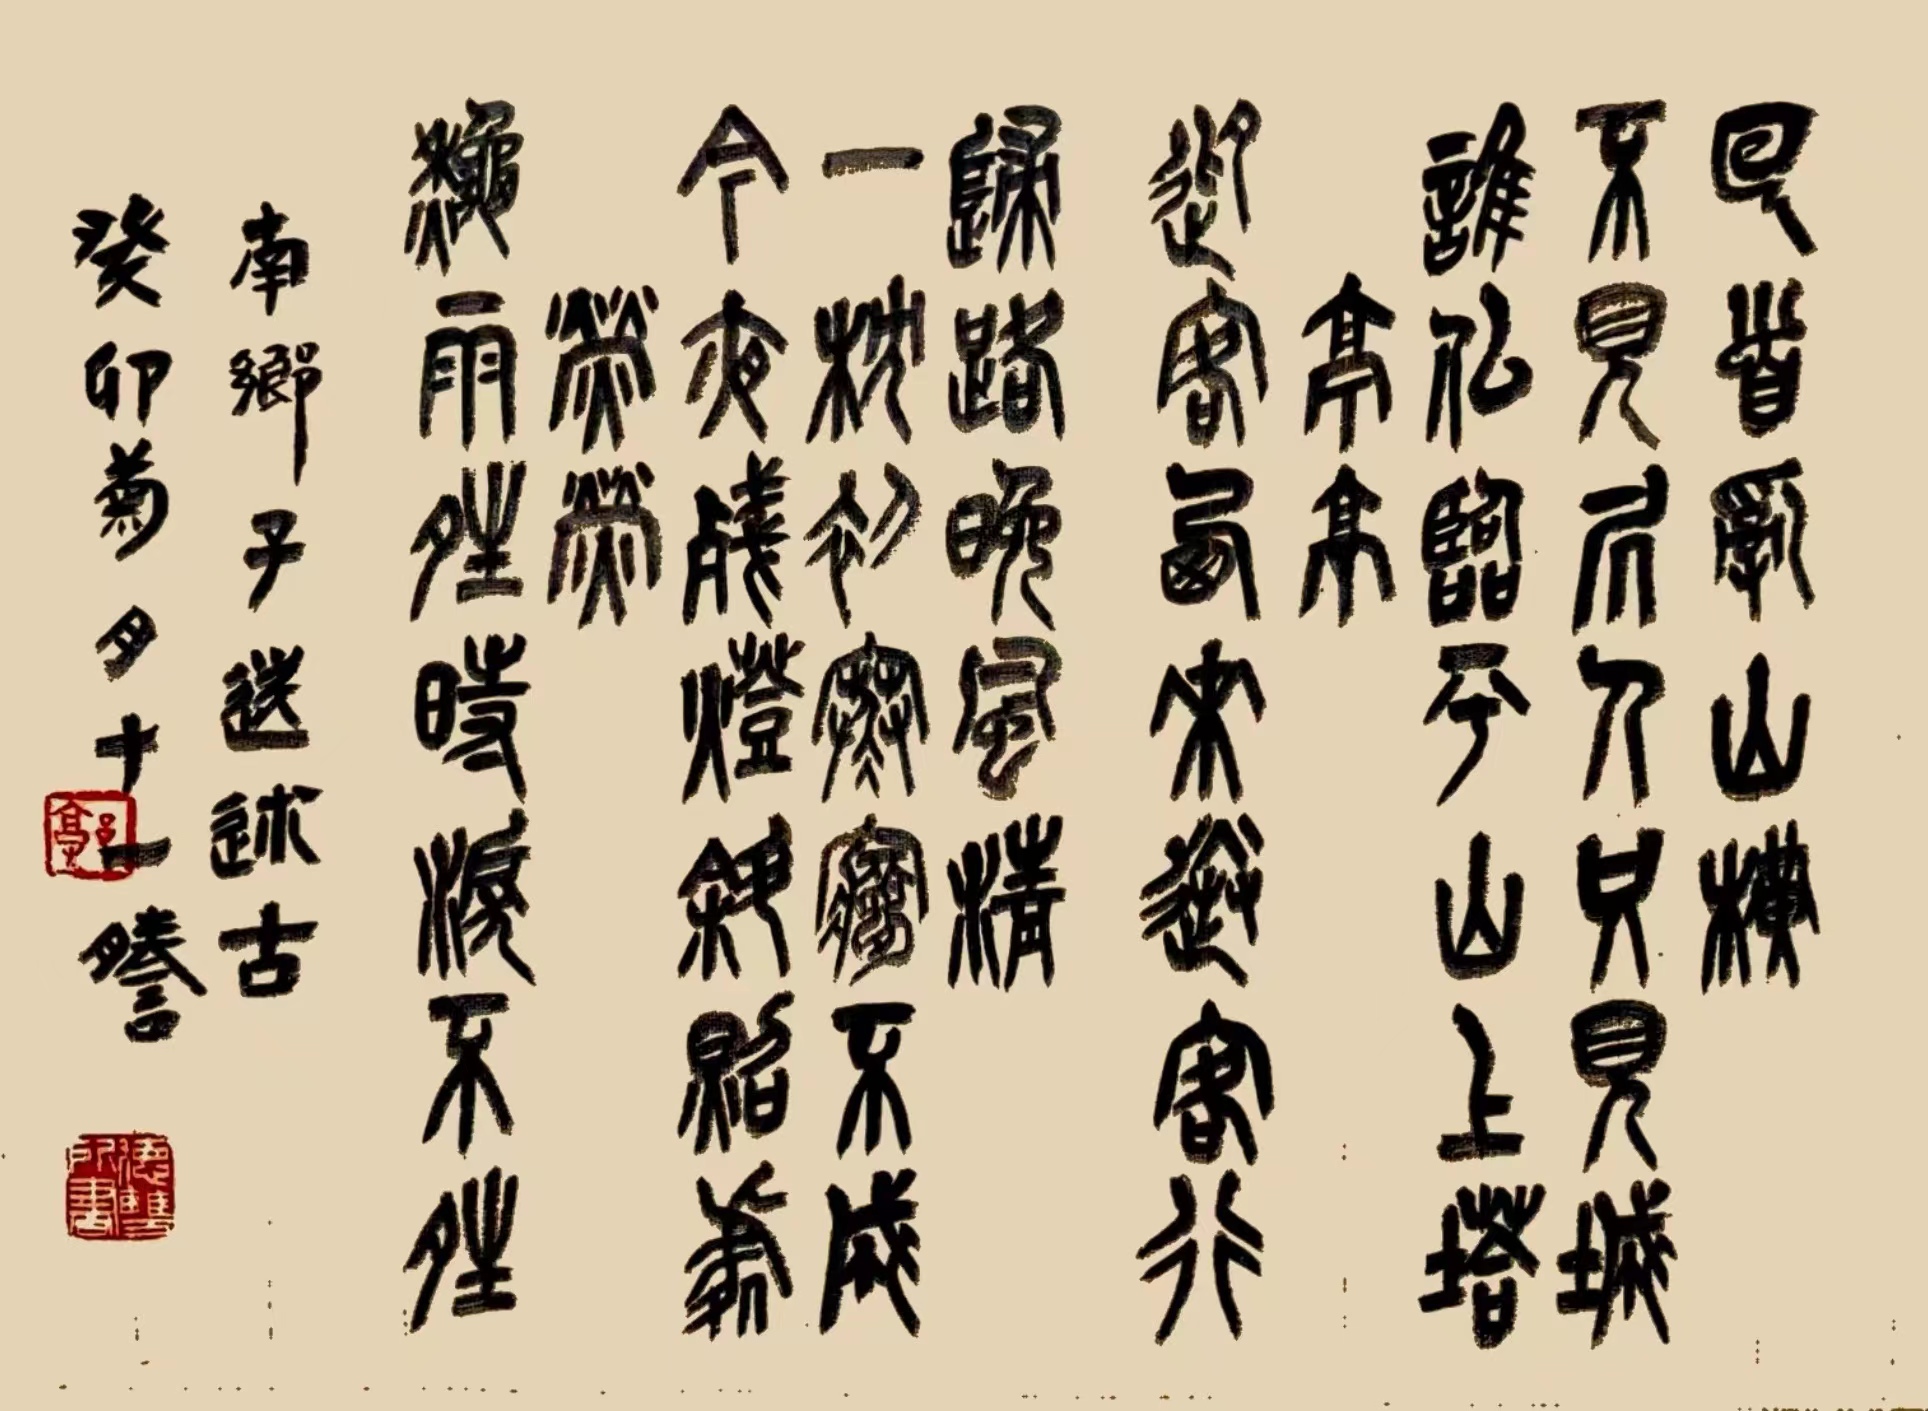 回首亂山橫
不見居人只見城
誰似臨平山上塔
亭亭
迎客西來送客行
歸路晚風清
一枕初寒夢不成
今夜殘燈斜照處
熒熒
秋雨晴時淚不晴
南鄉子送述古
癸卯菊月十一謄